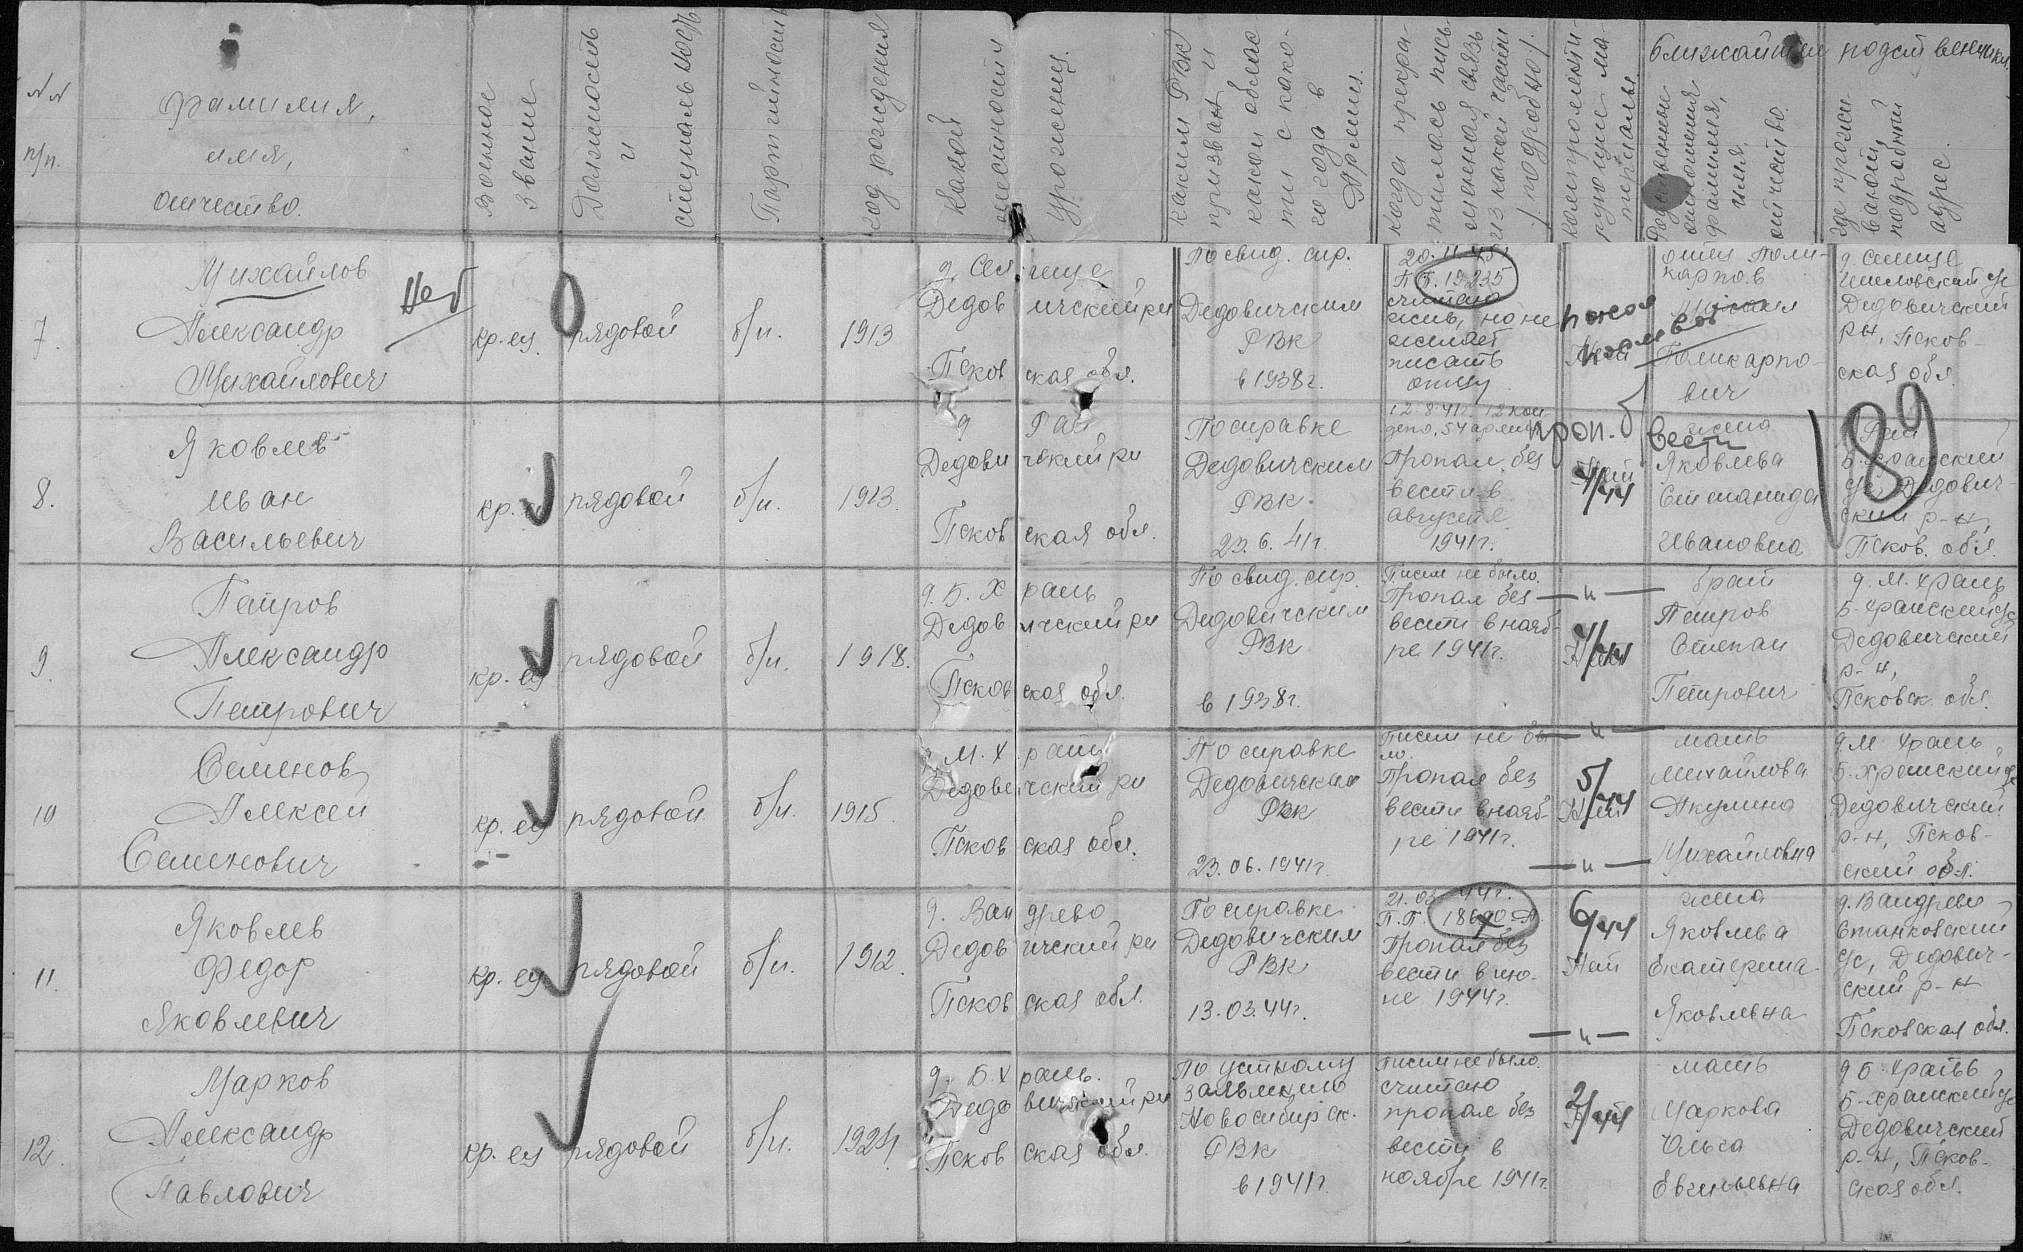 №№
п/п.
Фамилия,
имя,
отчество.
Военное
звание
Должность
и
специальность
Партийность
Год рождения
Какой
местности
уроженец
Каким РВК
призван и
какой облас
ти с како-
го года в
Армии.
Когда прекра-
тилась пись-
менная связь
из какой части
/подробно/.
Компромети-
рующие ма-
териалы.
Ближайшие родственники.
Родственные
отношения
фамилия,
имя,
отчество.
Где прожи-
вают,
подробный
адрес.
7.
Михайлов
Александр
Михайлович
кр-ец
рядовой
б/п.
1913
д. Сел ище
Дедов ический рн
Псков ская обл.
По свид. сир.
Дедовичским
РВК
в 1938г.
П.П. 19235
считаю
жив, но не
желает
писать
отцу
Нет
отец Поли-
карпов
Поликарпо-
вич
д. Селище
Дедовичский
рн, Псков-
ская обл.
8.
Яковлев
Иван
Васильевич
кр.
рядовой
б/п.
1913
д Рай
Дедови чский рн
Псков ская обл.
По справке
Дедовичским
РВК
23.6.41г.
12.8.41г.
Пропал без
вести в
августе
1941г.
проп. б/вести
4/44
жена
Яковлева
Степанида
Ивановна
189
Дедович-
ский р-н,
Псков. обл.
9.
Петров
Александр
Петрович
кр-ец
рядовой
б/п.
1918.
д. Б. Х рапь
Дедов ичский рн
Псков ская обл.
По свид. сир.
Дедовичским
РВК
в 1938г.
Писем не было.
Пропал без
вести в нояб-
ре 1941г.
— и —
брат
Петров
Степан
Петрович
д. М. Храпь
Б-Храпский с/с
Дедовичский
р-н,
Псковск. обл.
10
Семенов
Алексей
Семенович
кр-ец
рядовой
б/п.
1915.
М. Х рапь
Дедови чский рн
Псков ская обл.
По справке
Дедовичским
РВК
23.06.1941г.
Писем не бы
ло.
Пропал без
вести в нояб-
ре 1941г.
— и —
5/44
Нет
мать
Михайлова
Акулина
Михайловна
д. М Храпь
Б-Храпский с/с
Дедовичский
р-н, Псков-
ский обл.
11.
Яковлев
Федор
Яковлевич
кр-ец
рядовой
б/п.
1912.
д. Ван древо
Дедов ичский рн
Псков ская обл.
По справке
Дедовичским
РВК
13.03.44г.
П.П.
Пропал без
вести в ию-
не 1944г.
— и —
6/44
Нет
жена
Яковлева
Екатерина
Яковлевна
Станковский
с/с, Дедович-
ский р-н
Псковская обл.
12.
Марков
Александр
Павлович
кр-ец
рядовой
б/п.
1924
д. Б. Х рапь.
Дедо вичский рн
Псков ская обл.
По устному
заявлению
Новосибирск.
РВК
в 1941г.
Писем не было.
считаю
пропал без
вести в
ноябре 1941г.
— и —
мать
Маркова
Ольга
Евгеньевна
д Б-Храпь
Б-Храпский с/с
Дедовичский
р-н, Псков-
ская обл.